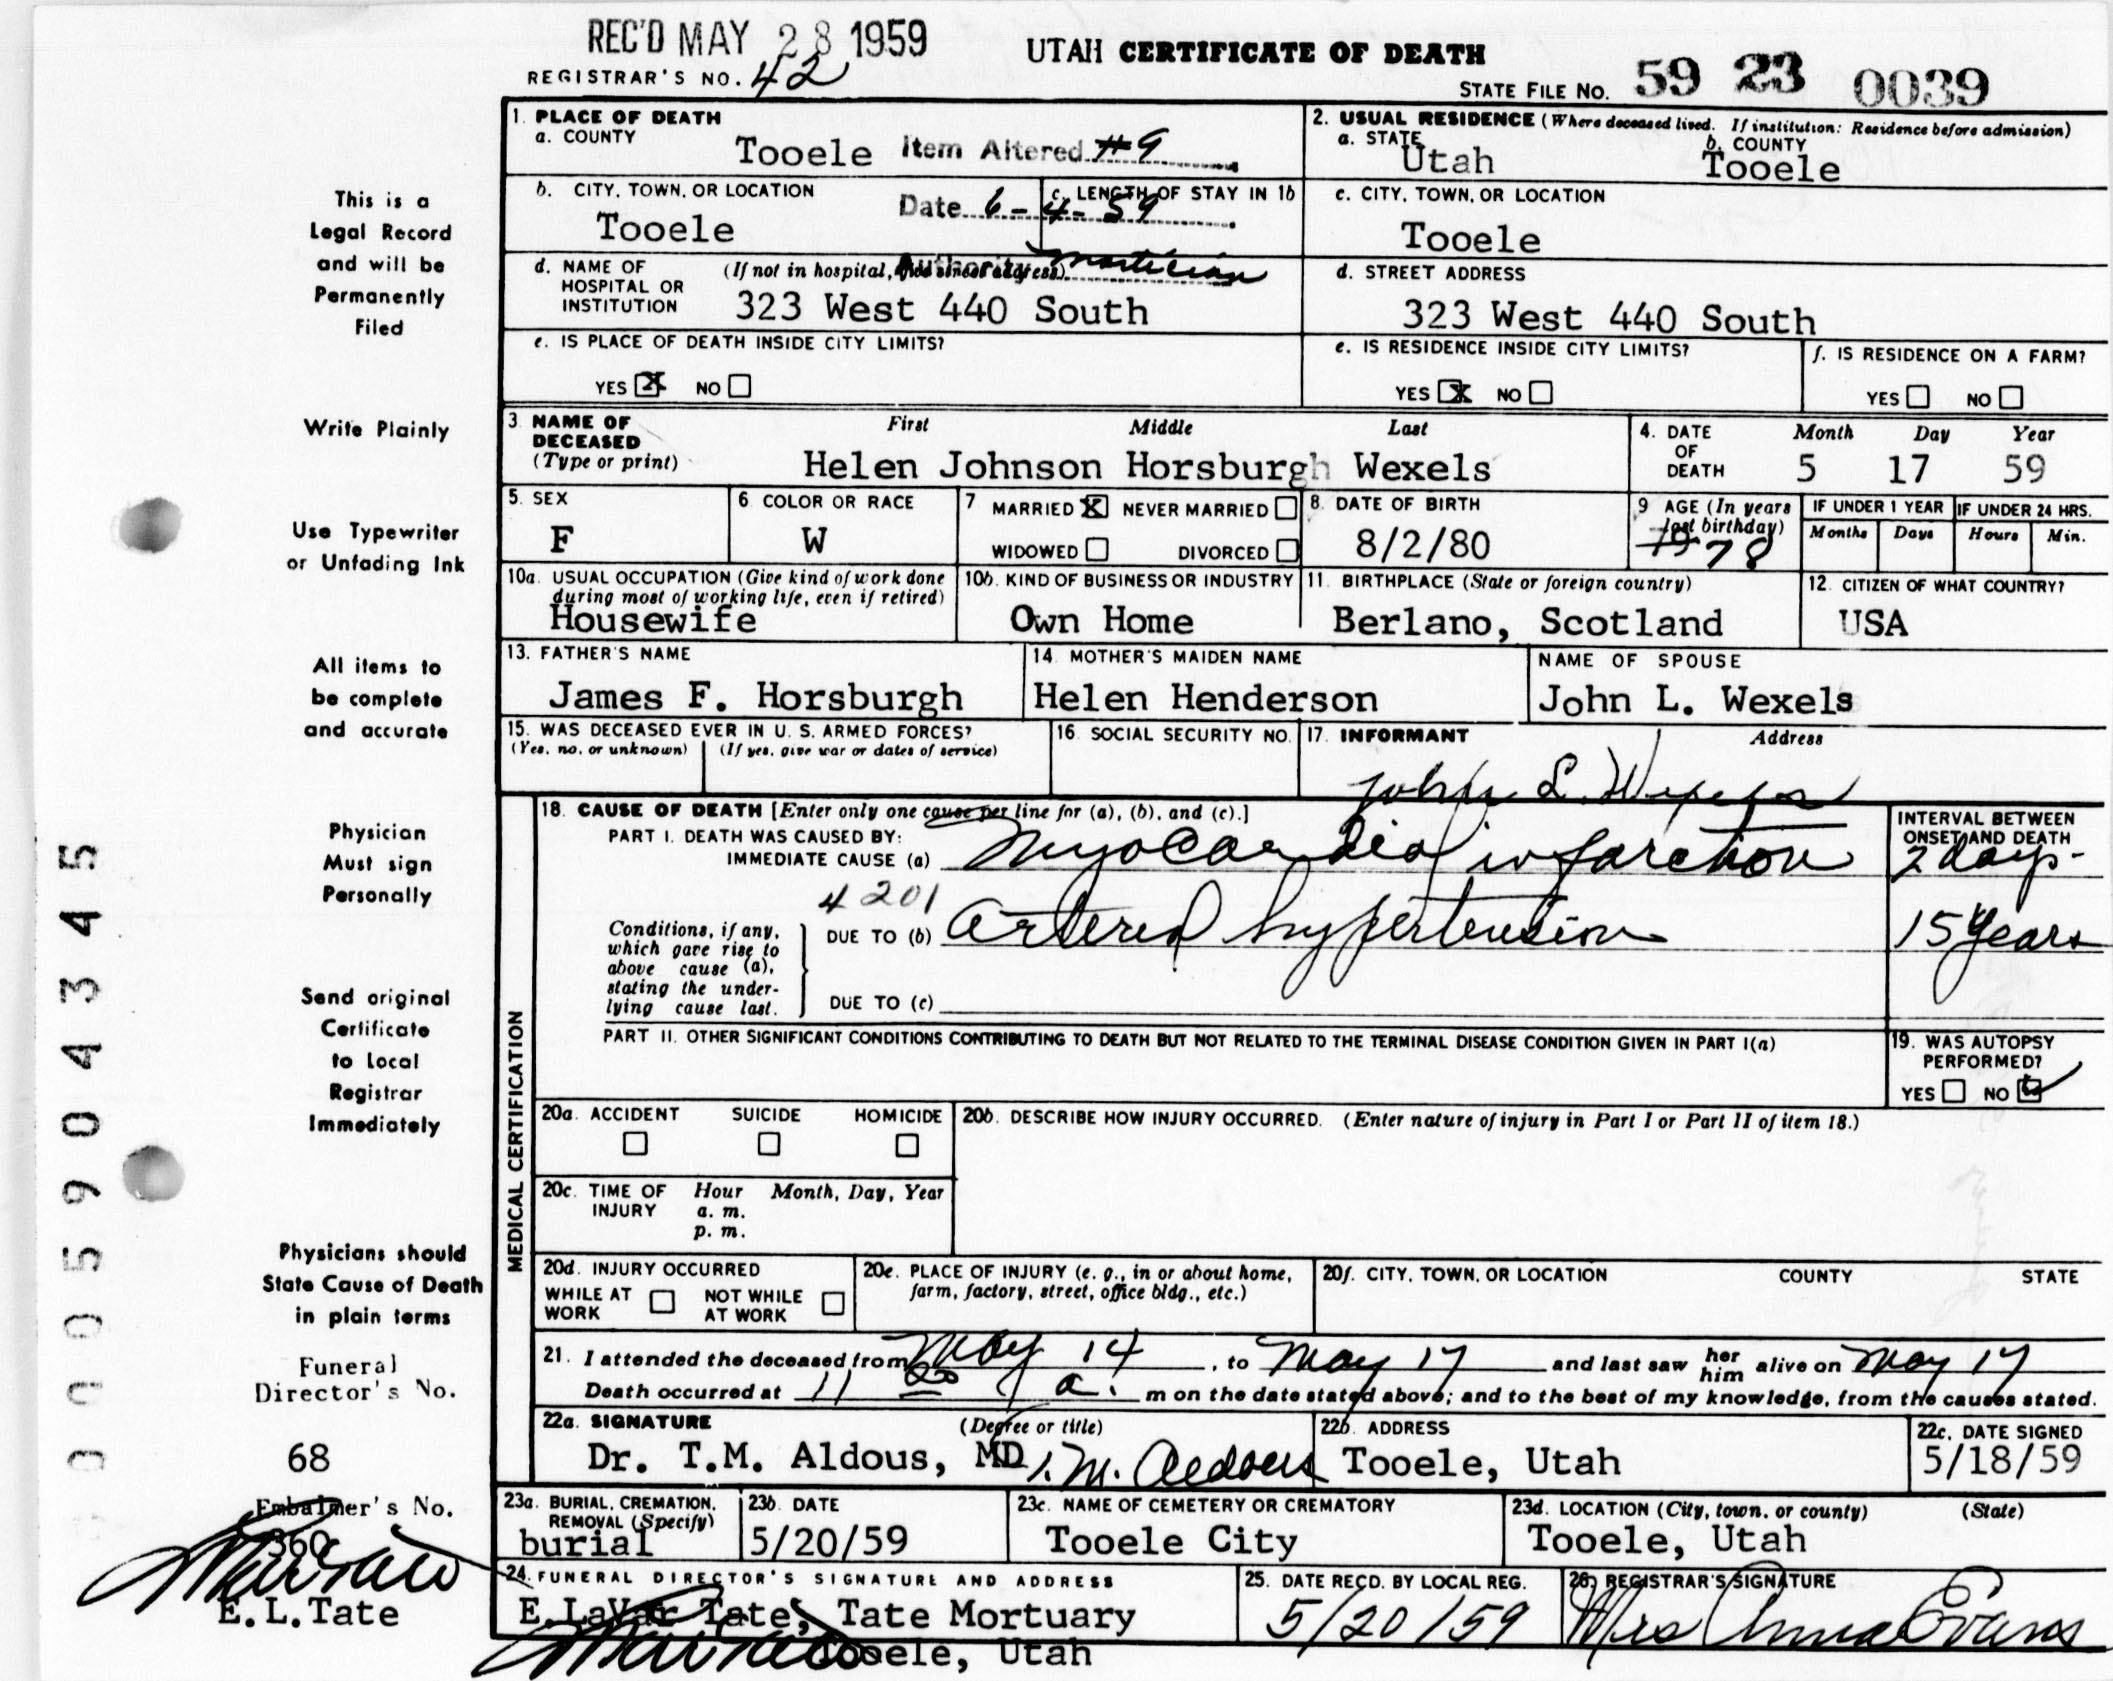 REC'D MAY 28 1959
UTAH CERTIFICATE OF DEATH
REGISTRAR'S NO. 42
STATE FILE NO. 59 23 0039
1. PLACE OF DEATH
a. COUNTY
Tooele
Item Altered #9
2. USUAL RESIDENCE (Where deceased lived. If institution: Residence before admission)
a. STATE
Utah
b. COUNTY
Tooele
b. CITY, TOWN, OR LOCATION
Tooele
Date 6-4-59
c. LENGTH OF STAY IN 1b
c. CITY, TOWN, OR LOCATION
Tooele
d. NAME OF HOSPITAL OR INSTITUTION
(If not in hospital, give street address)
Authority mortician
323 West 440 South
d. STREET ADDRESS
323 West 440 South
e. IS PLACE OF DEATH INSIDE CITY LIMITS?
YES X NO
e. IS RESIDENCE INSIDE CITY LIMITS?
YES X NO
f. IS RESIDENCE ON A FARM?
YES NO
3. NAME OF DECEASED (Type or print)
First Middle Last
Helen Johnson Horsburgh Wexels
4. DATE OF DEATH
Month Day Year
5 17 59
5. SEX
F
6. COLOR OR RACE
W
7 MARRIED X NEVER MARRIED
WIDOWED DIVORCED
8. DATE OF BIRTH
8/2/80
9 AGE (In years last birthday)
79 78
IF UNDER 1 YEAR IF UNDER 24 HRS.
Months Days Hours Min.
10a. USUAL OCCUPATION (Give kind of work done during most of working life, even if retired)
Housewife
10b. KIND OF BUSINESS OR INDUSTRY
Own Home
11. BIRTHPLACE (State or foreign country)
Berlano, Scotland
12. CITIZEN OF WHAT COUNTRY?
USA
13. FATHER'S NAME
James F. Horsburgh
14. MOTHER'S MAIDEN NAME
Helen Henderson
NAME OF SPOUSE
John L. Wexels
15. WAS DECEASED EVER IN U. S. ARMED FORCES?
(Yes, no, or unknown) (If yes, give war or dates of service)
16. SOCIAL SECURITY NO.
17. INFORMANT Address
John L. Wexels
MEDICAL CERTIFICATION
18. CAUSE OF DEATH [Enter only one cause per line for (a), (b), and (c).]
PART I. DEATH WAS CAUSED BY:
IMMEDIATE CAUSE (a) Myocardial infarction
INTERVAL BETWEEN ONSET AND DEATH
2 days-
4201
Conditions, if any, which gave rise to above cause (a), stating the underlying cause last.
DUE TO (b) Arterial hypertension
15 years
DUE TO (c)
PART II. OTHER SIGNIFICANT CONDITIONS CONTRIBUTING TO DEATH BUT NOT RELATED TO THE TERMINAL DISEASE CONDITION GIVEN IN PART I(a)
19. WAS AUTOPSY PERFORMED?
YES NO
20a. ACCIDENT SUICIDE HOMICIDE
20b. DESCRIBE HOW INJURY OCCURRED. (Enter nature of injury in Part I or Part II of item 18.)
20c. TIME OF INJURY
Hour Month, Day, Year
a. m.
p. m.
20d. INJURY OCCURRED
WHILE AT WORK NOT WHILE AT WORK
20e. PLACE OF INJURY (e. g., in or about home, farm, factory, street, office bldg., etc.)
20f. CITY, TOWN, OR LOCATION COUNTY STATE
21. I attended the deceased from May 14, to May 17 and last saw her him alive on May 17
Death occurred at 11 20 a. m on the date stated above; and to the best of my knowledge, from the causes stated.
22a. SIGNATURE (Degree or title)
Dr. T.M. Aldous, MD T. M. Aldous
22b. ADDRESS
Tooele, Utah
22c. DATE SIGNED
5/18/59
23a. BURIAL, CREMATION, REMOVAL (Specify)
burial
23b. DATE
5/20/59
23c. NAME OF CEMETERY OR CREMATORY
Tooele City
23d. LOCATION (City, town, or county) (State)
Tooele, Utah
24. FUNERAL DIRECTOR'S SIGNATURE AND ADDRESS
E. LaVar Tate, Tate Mortuary
Tooele, Utah
25. DATE RECD. BY LOCAL REG.
5/20/59
26. REGISTRAR'S SIGNATURE
Mrs Anna Evans
This is a
Legal Record
and will be
Permanently
Filed
Write Plainly
Use Typewriter
or Unfading Ink
All items to
be complete
and accurate
Physician
Must sign
Personally
Send original
Certificate
to Local
Registrar
Immediately
Physicians should
State Cause of Death
in plain terms
Funeral
Director's No.
68
Embalmer's No.
360
E.L.Tate
005904345